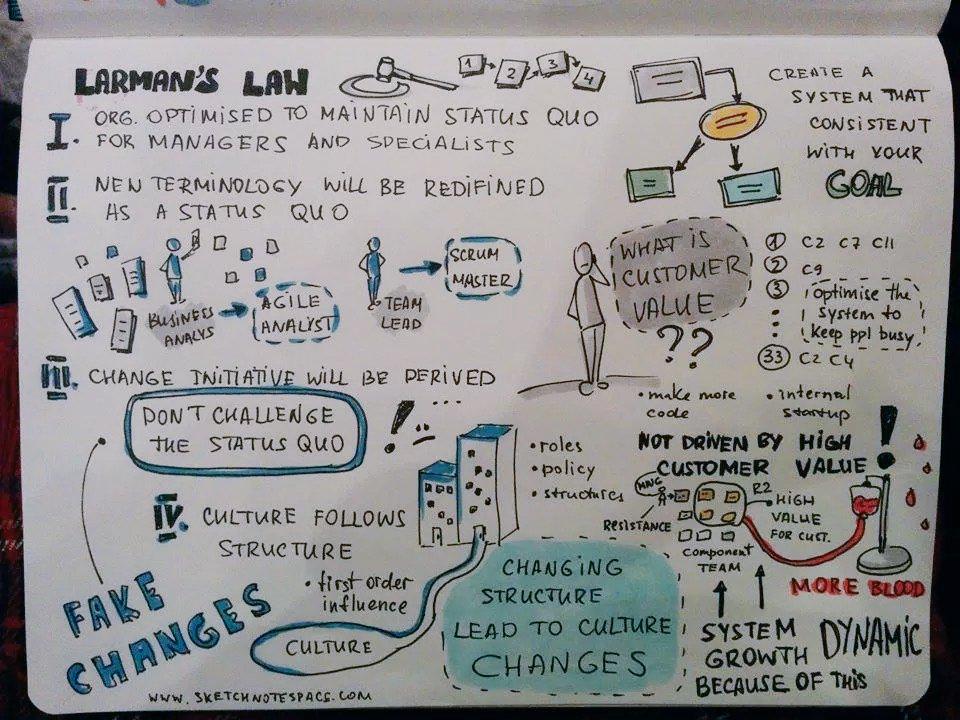 LARMAN'S LAW
1 2 3 4
I. ORG. OPTIMISED TO MAINTAIN STATUS QUO
FOR MANAGERS AND SPECIALISTS
II. NEW TERMINOLOGY WILL BE REDIFINED
AS A STATUS QUO
BUSINESS
ANALYS
AGILE
ANALYST
TEAM
LEAD
SCRUM
MASTER
III. CHANGE INITIATIVE WILL BE DERIVED
DON'T CHALLENGE
THE STATUS QUO
! ...
IV. CULTURE FOLLOWS
STRUCTURE
• first order
influence
CULTURE
FAKE
CHANGES
WWW.SKETCHNOTESPACE.COM
• roles
• policy
• structures
CHANGING
STRUCTURE
LEAD TO CULTURE
CHANGES
CREATE A
SYSTEM THAT
CONSISTENT
WITH YOUR
GOAL
WHAT IS
CUSTOMER
VALUE
??
1 C2 C7 C11
2 C9
3 optimise the
system to
keep ppl busy
33 C2 C4
• make more
code
• internal
startup
NOT DRIVEN BY HIGH
CUSTOMER VALUE !
MNG
RESISTANCE
R2
HIGH
VALUE
FOR CUST.
component
TEAM
MORE BLOOD
SYSTEM DYNAMIC
GROWTH
BECAUSE OF THIS